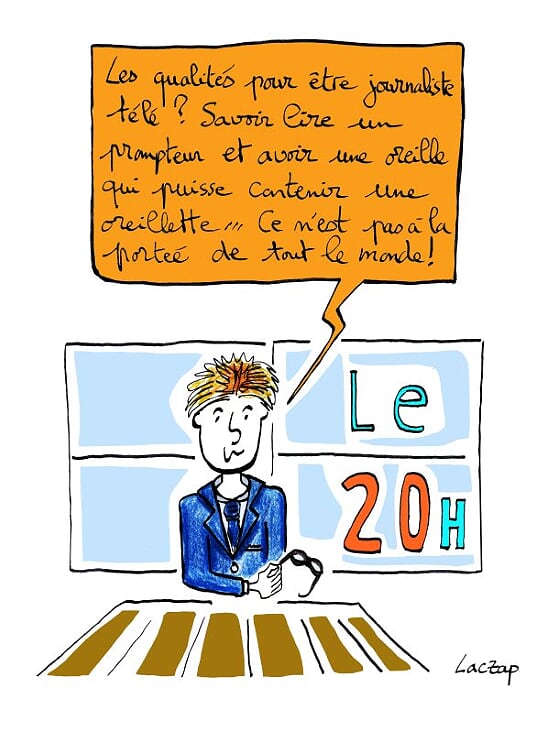 Les qualités pour être journaliste
télé ? Savoir lire un
prompteur et avoir une oreille
qui puisse contenir une
oreillette... Ce n'est pas à la
porteé de tout le monde!
Le
20H
Laczap